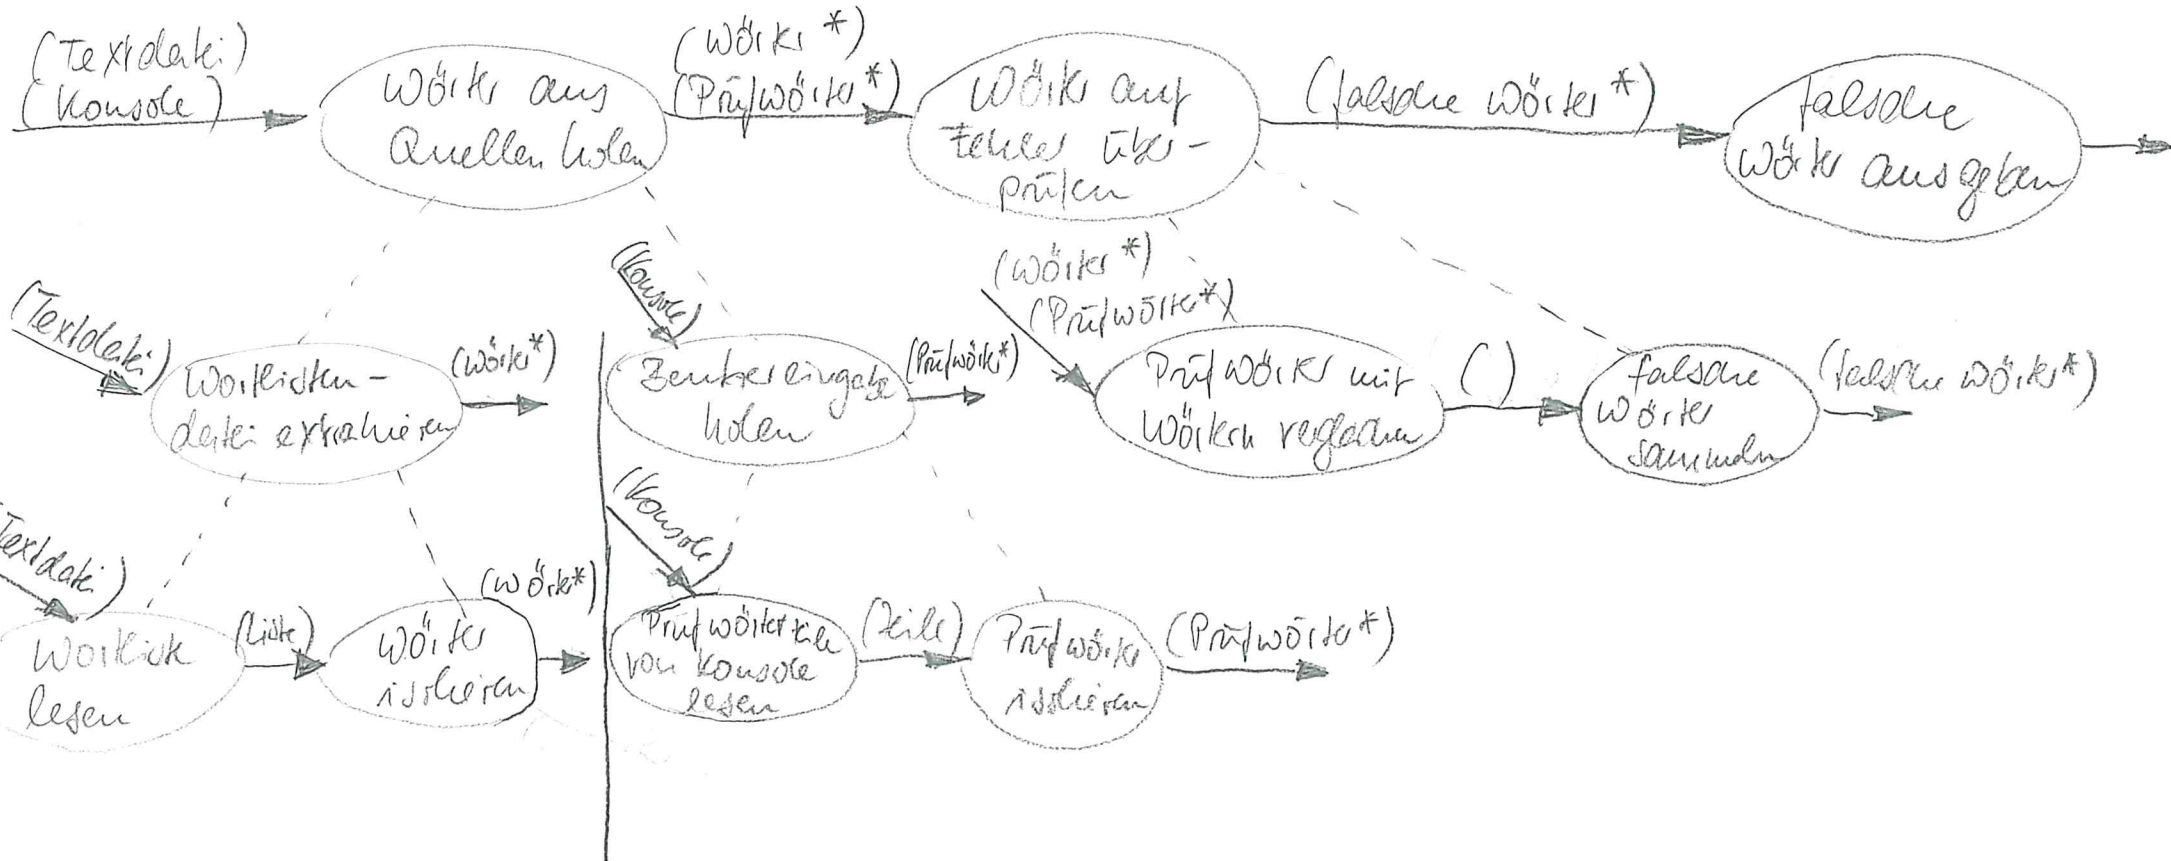 (Textdatei)
(Konsole)
Wörter aus
Quellen holen
(Wörter*)
(Prüfwörter*)
Wörter auf
Fehler über-
prüfen
(falsche Wörter*)
falsche
Wörter ausgeben
(Textdatei)
Wortlisten-
datei extrahieren
(Wörter*)
(Konsole)
Benutzereingabe
holen
(Prüfwörter*)
(Wörter*)
(Prüfwörter*)
Prüfwörter mit
Wörtern vergleichen
( )
falsche
Wörter
sammeln
(falsche Wörter*)
Textdatei)
Wortliste
lesen
(Liste)
Wörter
isolieren
(Wörter*)
(Konsole)
Prüfwörterzeile
von Konsole
lesen
(Zeile)
Prüfwörter
isolieren
(Prüfwörter*)